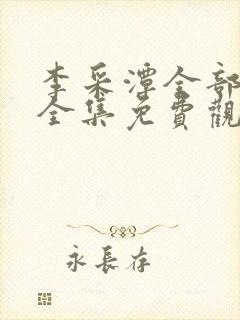 李采潭全部
全集免費觀
永長存